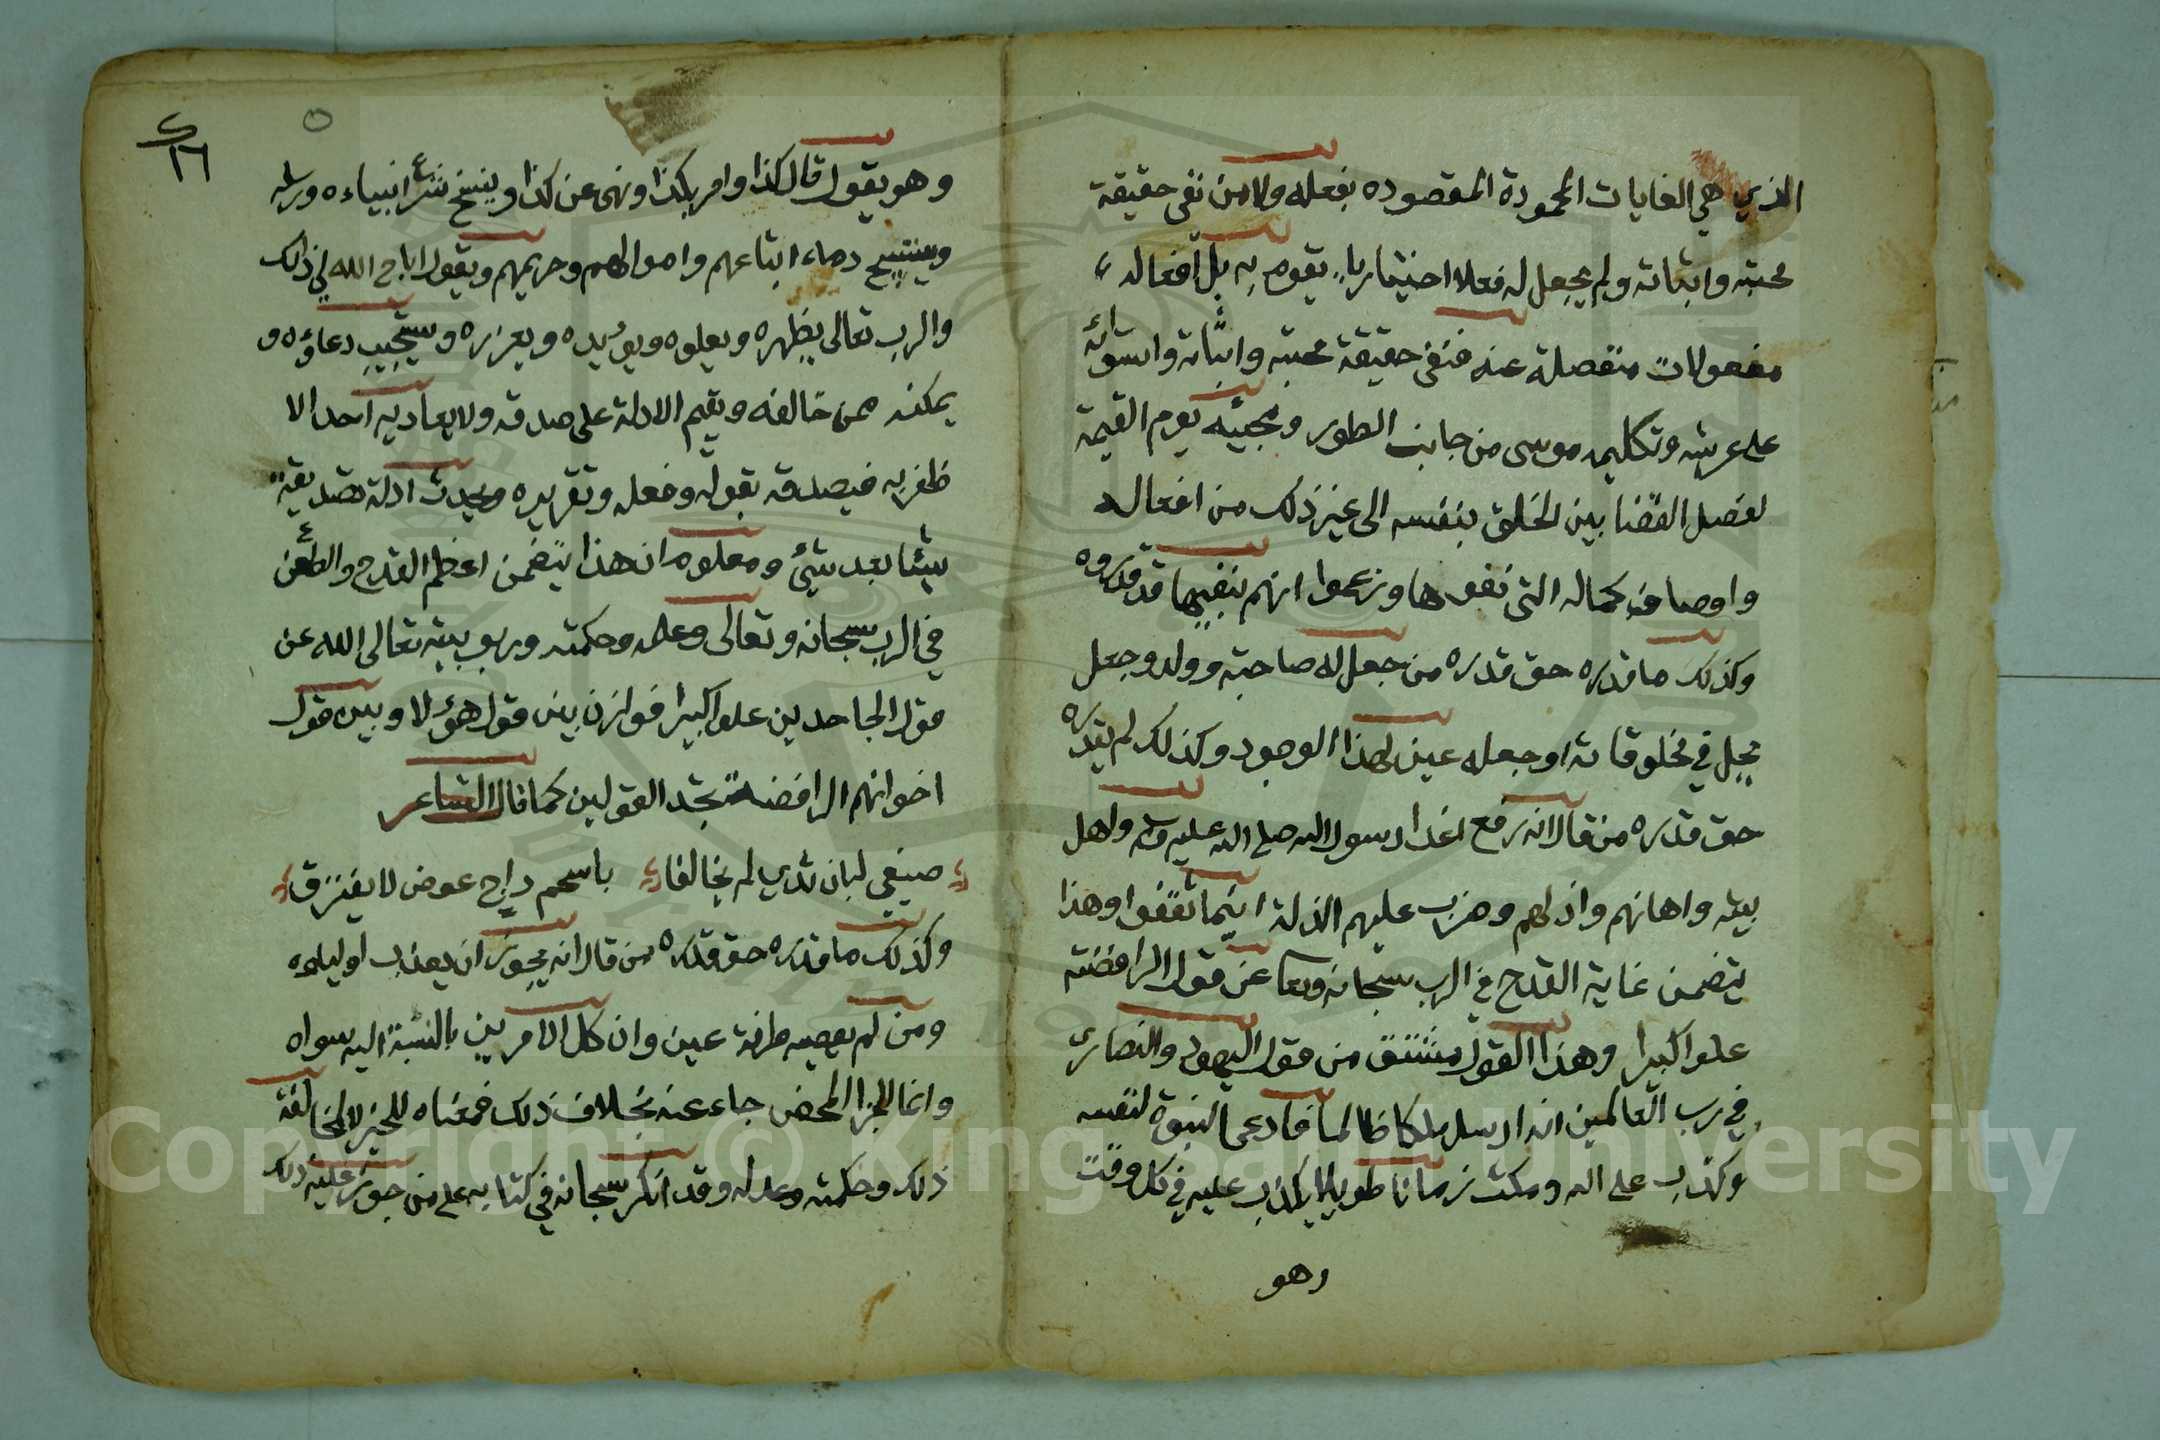 الذي هي الغايات المحمودة المقصوده بفعله ولا من نفى حقيقة
محبته واتيانه ولم يجعل له فعلا اختياريا يقوم به بل افعاله
مفعولات منفصلة عنه فنفى حقيقة محبته واتيانه واستوائه
على عرشه وتكليمه موسى من جانب الطور ومجيئه يوم القيمة
لفصل القضا بين الخلق بنفسه الى غير ذلك من افعاله
واوصاف كماله التي نفوها وزعموا انهم بنفيها قد قدروه
وكذلك ما قدره حق قدره من جعل له صاحبة وولد وجعل
يحل في مخلوقاته او جعله عين هذا الوجود وكذلك لم يقدره
حق قدره من قال انه رفع اعدا رسول الله صلى الله عليه وسلم واهل
بيته واهانهم واذلهم وضرب عليهم الذلة اينما ثقفوا وهذا
يتضمن غاية القدح في الرب سبحانه وتعا عن قول الرافضة
علوا كبيرا وهذا القول مشتق من قول اليهود والنصارى
في رب العالمين انه ارسل ملكا ظالما فادعى النبوة لنفسه
وكذب على الله ومكث زمانا طويلا يكذب عليه في كل وقت
وهو
٥
٢٦
وهو يقول قال كذا وامر بكذا ونهى عن كذا وينسخ شرائع انبياءه ورسله
ويستبيح دماء اتباعهم واموالهم وحريمهم ويقول اباح الله لي ذلك
والرب تعالى يظهره ويعلوه ويؤيده ويعززه ويستجيب دعاؤه و
يمكنه ممن خالفه ويقيم الادلة على صدقه ولا يعاديه احد الا
ظفر به فيصدقه بقوله وفعله وتقريره ويحدث ادلة تصديقه
شيئا بعد شيئ ومعلوم ان هذا يتضمن اعظم القدح والطعن
في الرب سبحانه وتعالى وعلمه وحكمته وربوبيته تعالى الله عن
قول الجاحدين علوا كبيرا فوازن بين قول هؤلا وبين قول
اخوانهم الرافضة تجد القولين كما قال الشاعر
رضيعي لبان ثدي ام تحالفا باسحم داج عوض لا يفترق
وكذلك ما قدره حق قدره من قال انه يجوز ان يعذب اولياءه
ومن لم يعصه طرفة عين وان كل الامرين بالنسبة اليه سواه
وانما الخبر المحض جاء عنه بخلاف ذلك فمعناه للخبر لا لمخالفة
ذلك وحكمته وعدله وقد انكر سبحانه في كتابه على من جوز عليه ذلك
Copyright © King Saud University